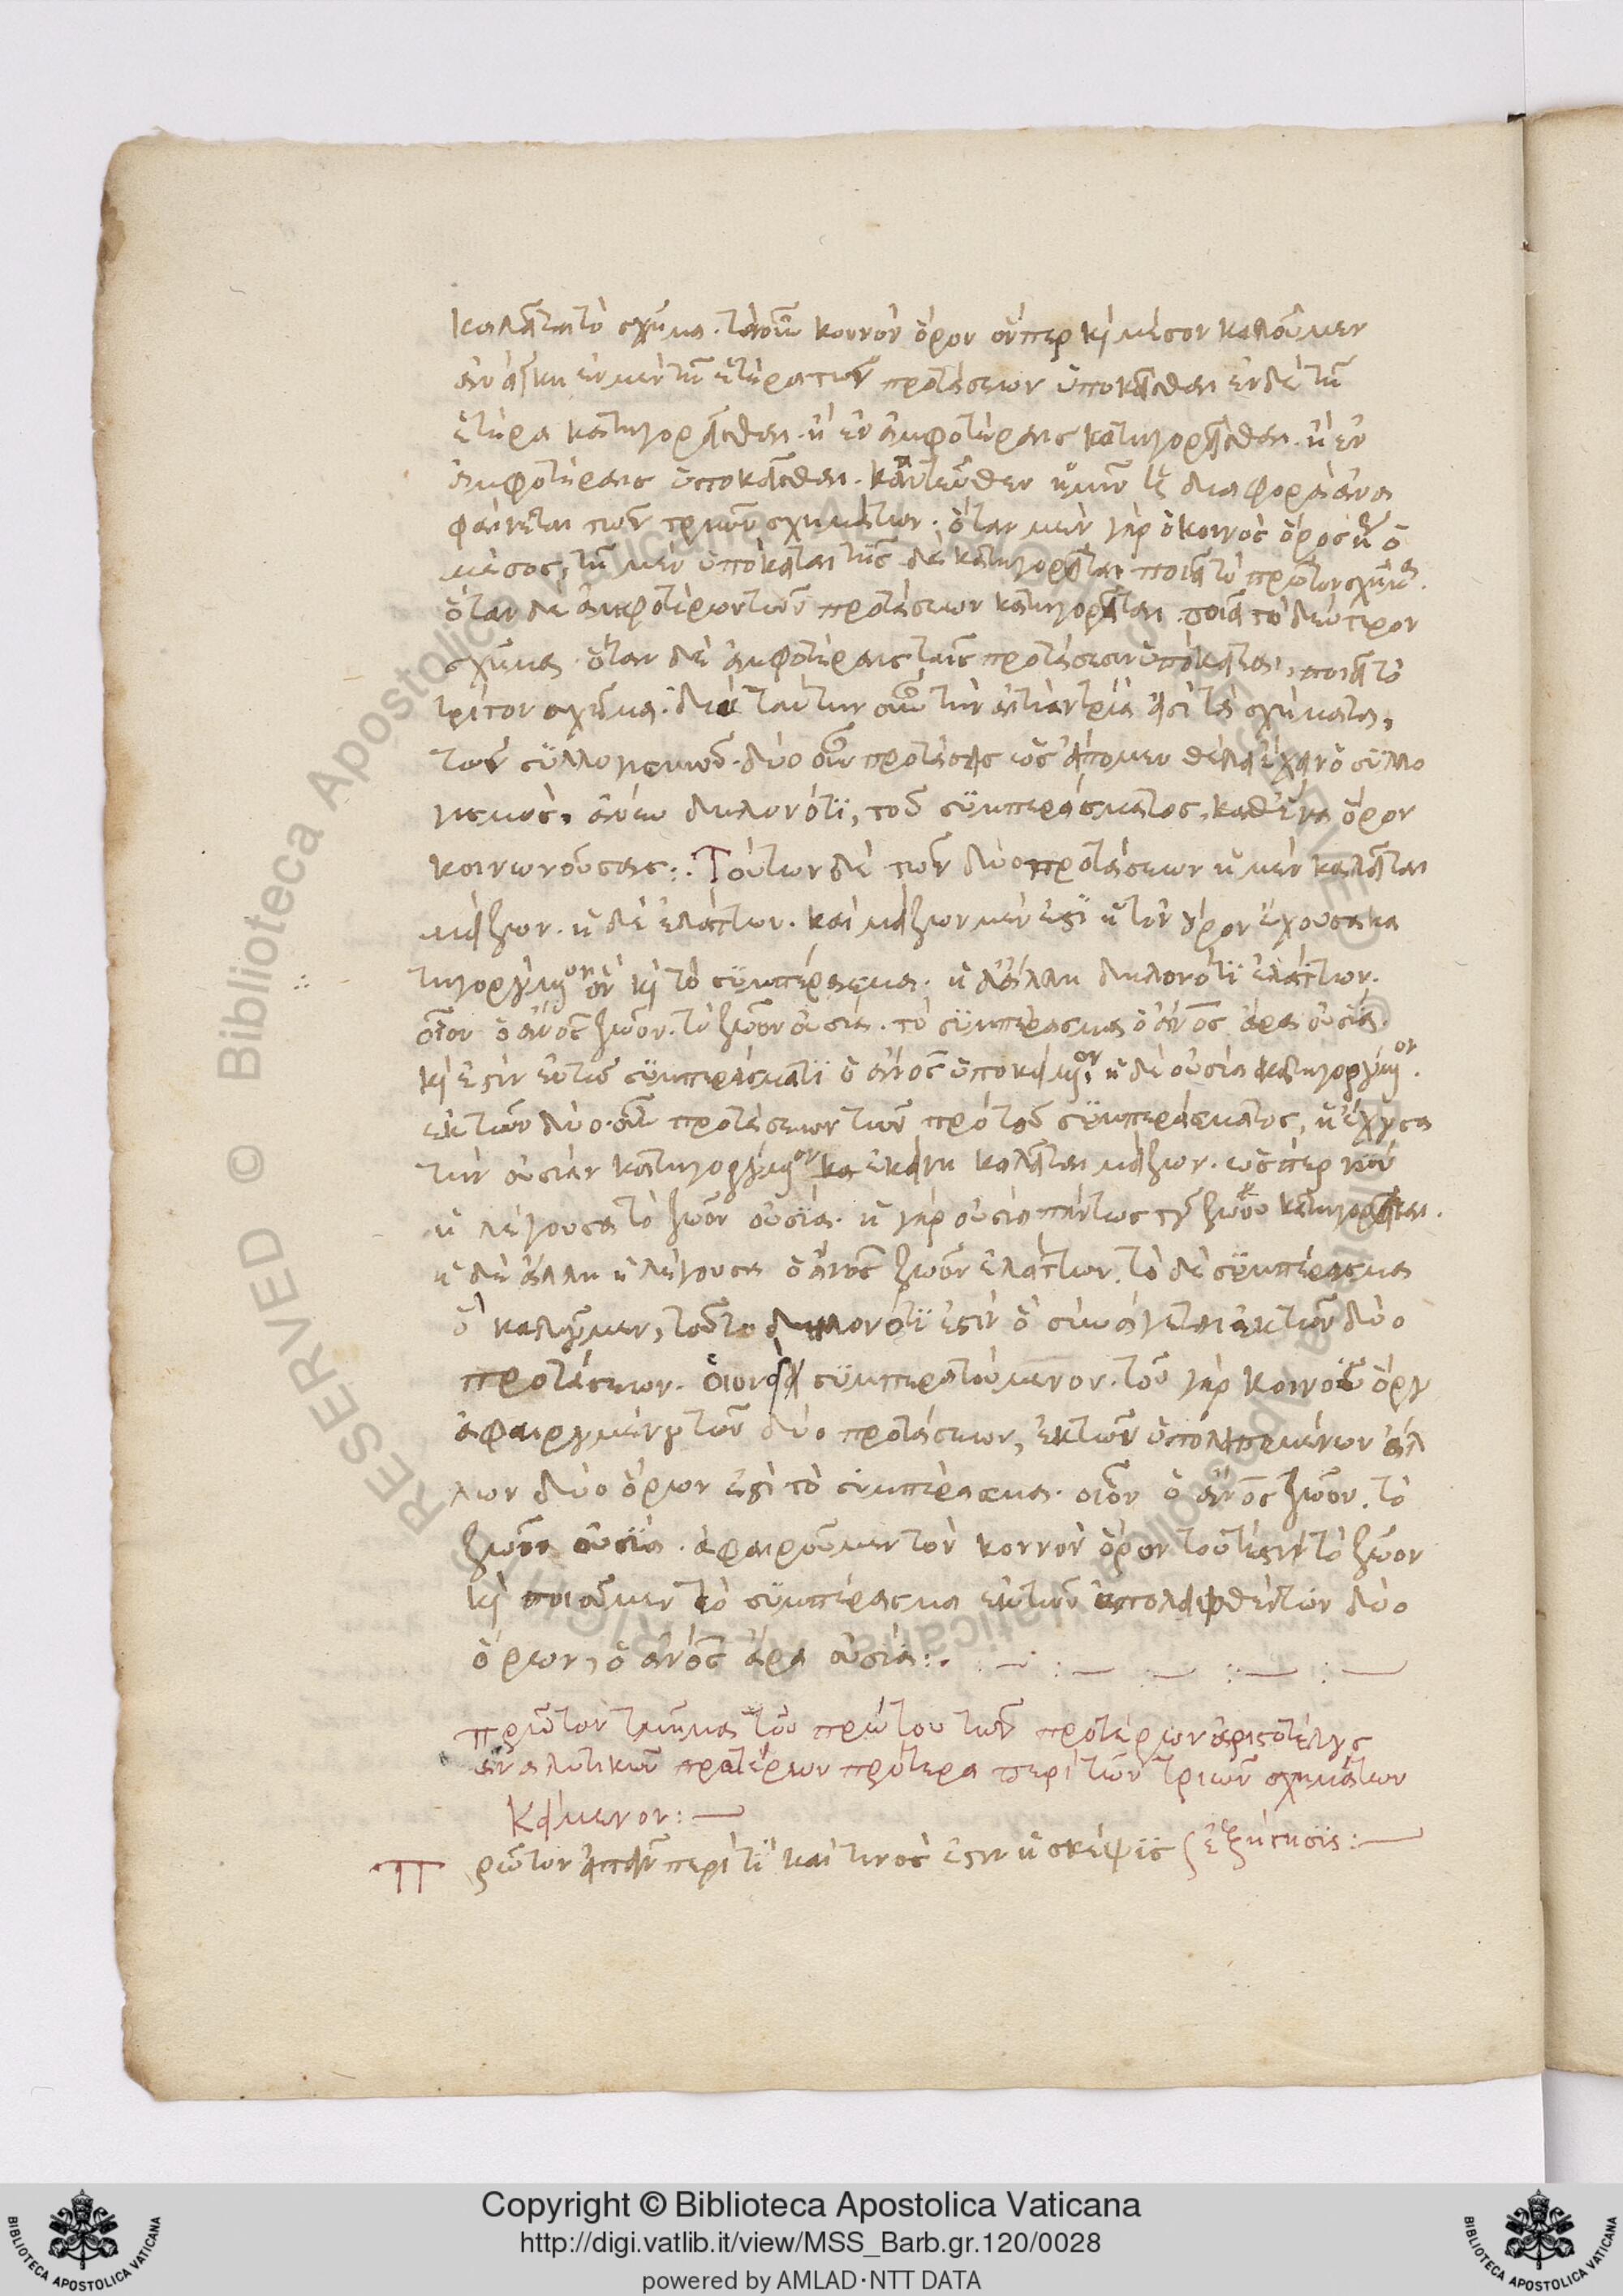 καλεῖται τὸ σχῆμα. τὸν οὖν κοινὸν ὅρον ὅνπερ καὶ μέσον καλοῦμεν
ἀνάγκη ἐν μὲν τῆ ἑτέρα τῶν προτάσεων ὑποκεῖσθαι ἐν δὲ τῆ
ἑτέρα κατηγορεῖσθαι. ἢ ἐν ἀμφοτέραις κατηγορεῖσθαι. ἢ ἐν
ἀμφοτέραις ὑποκεῖσθαι. κἀντεῦθεν ἡμῖν ἡ διαφορὰ ἀνα
φαίνεται τῶν τριῶν σχημάτων. ὅταν μὲν γὰρ ὁ κοινὸς ὅρος ἤτοι ὁ
μέσος, τῆ μὲν ὑπόκειται τῆς δὲ κατηγορεῖται ποιεῖ τὸ πρῶτον σχῆμα.
ὅταν δὲ ἀμφοτέρων τῶν προτάσεων κατηγορεῖται ποιεῖ τὸ δεύτερον
σχῆμα. ὅταν δὲ ἀμφοτέραις ταῖς προτάσεσιν ὑπόκειται, ποιεῖ τὸ
τρίτον σχῆμα. διὰ ταύτην οὖν τὴν αἰτίαν τρία εἰσὶ τὰ σχήματα,
τῶν συλλογισμῶν. δύο οὖν προτάσεις ὡς εἴπομεν θέλει ἔχειν ὁ συλλο
γισμός, ἄνευ δηλονότι, τοῦ συμπεράσματος, καθ' ἕνα ὅρον
κοινωνούσας:. Τούτων δὲ τῶν δύο προτάσεων ἡ μὲν καλεῖται
μείζων. ἡ δὲ ἐλάττων. καὶ μείζων μέν ἐστι ἡ τὸν ὅρον ἔχουσα κα
τηγορούμενον ὂν καὶ τὸ συμπέρασμα. ἡ δ' ἄλλη δηλονότι ἐλάττων.
οἷον ὁ ἄνος ζῶον. τὸ ζῶον οὐσία. τὸ συμπέρασμα ὁ ἄνος ἄρα οὐσία.
καὶ ἔστιν ἐν τῶ συμπεράσματι ὁ ἄνος ὑποκείμενον, ἡ δὲ οὐσία κατηγορούμενον.
ἐκ τῶν δύο οὖν προτάσεων τῶν πρὸ τοῦ συμπεράσματος, ἡ ἔχουσα
τὴν οὐσίαν κατηγορούμενον κα ἐκείνη καλεῖται μείζων. ὥσπερ νῦν
ἡ λέγουσα τὸ ζῶον οὐσία. ἡ γὰρ οὐσία πάντως τοῦ ζώου κατηγορεῖται.
ἡ δὲ ἄλλη ἡ λέγουσα ὁ ἄνος ζῶον ἐλάττων. τὸ δὲ συμπέρασμα
ὃ καλοῦμεν, τοῦτο δηλονότι ἐστὶν ὃ συνάγεται ἐκ τῶν δύο
προτάσεων. οἱονεὶ συμπερατούμενον. τοῦ γὰρ κοινοῦ ὅρου
ἀφαιρουμένου τῶν δύο προτάσεων, ἐκ τῶν ὑπολειπομένων ἄλ
λων δύο ὅρων ἐστὶ τὸ συμπέρασμα. οἷον ὁ ἄνος ζῶον. τὸ
ζῶον οὐσία. ἀφαιροῦμεν τὸν κοινὸν ὅρον τουτέστιν τὸ ζῶον
καὶ ποιοῦμεν τὸ συμπέρασμα ἐκ τῶν ὑπολειφθέντων δύο
ὅρων, ὁ ἄνος ἄρα οὐσία:.
πρῶτον τμῆμα τοῦ πρώτου τῶν προτέρων ἀριστοτέλους
ἀναλυτικῶν προτέρων πρότερα περὶ τῶν τριῶν σχημάτων
Κείμενον:—
Πρῶτον εἰπεῖν περὶ τί καὶ τινός ἐστιν ἡ σκέψις ἐξήγησις:—
Copyright © Biblioteca Apostolica Vaticana
http://digi.vatlib.it/view/MSS_Barb.gr.120/0028
powered by AMLAD·NTT DATA